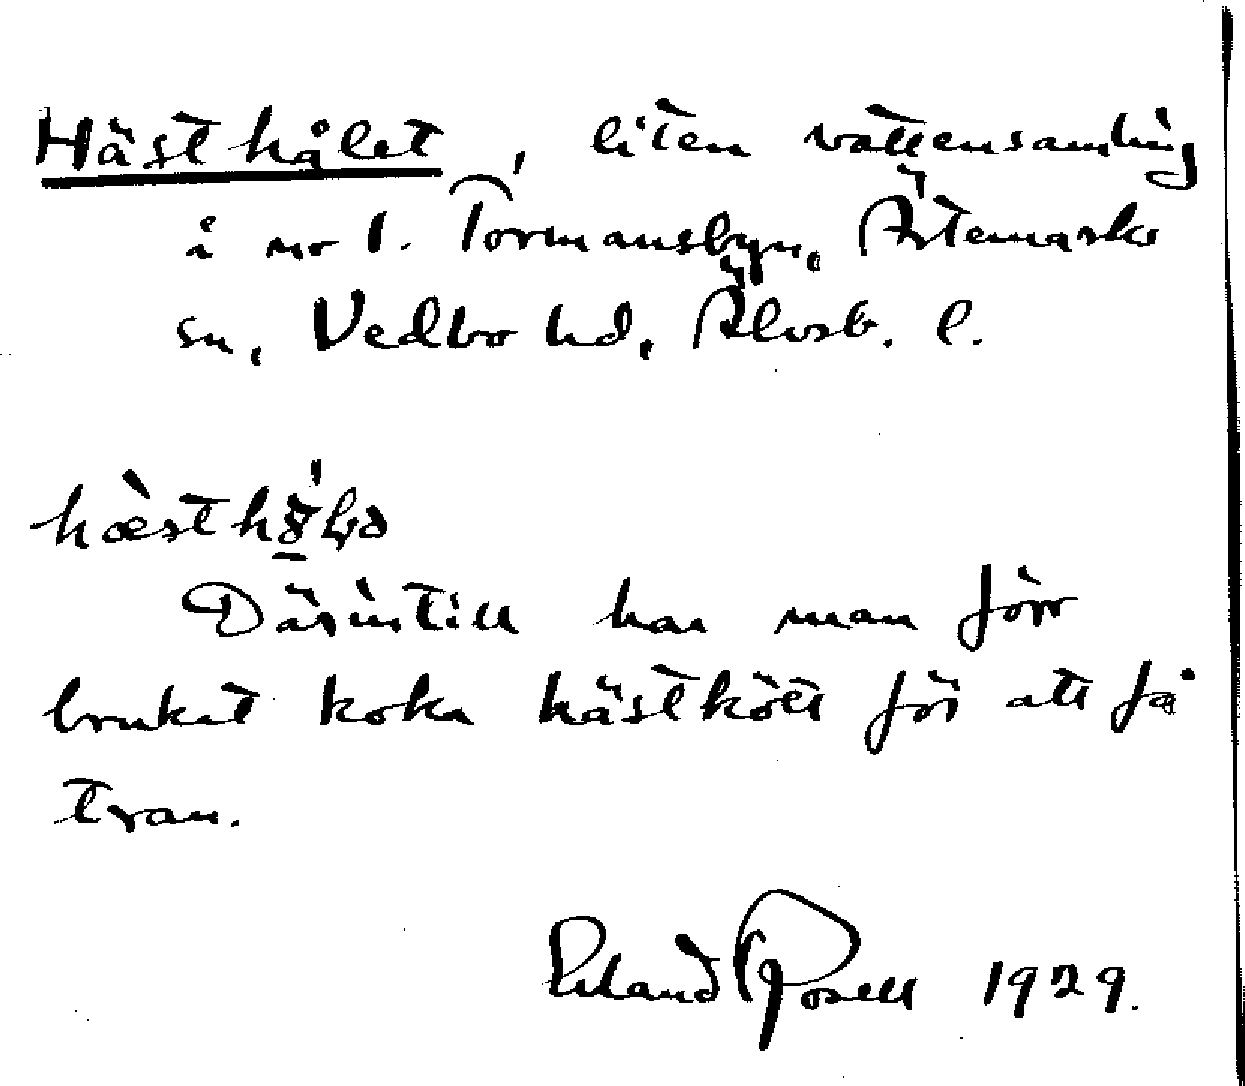 Hästhålet, liten vattensamling
å nr 1. Tormansbyn, Ärtemarks
sn, Vedbo hd, Älvsb. l.
Därintill har man förr
brukat koka hästkött för att få
tran.
Erland Rosell 1929.